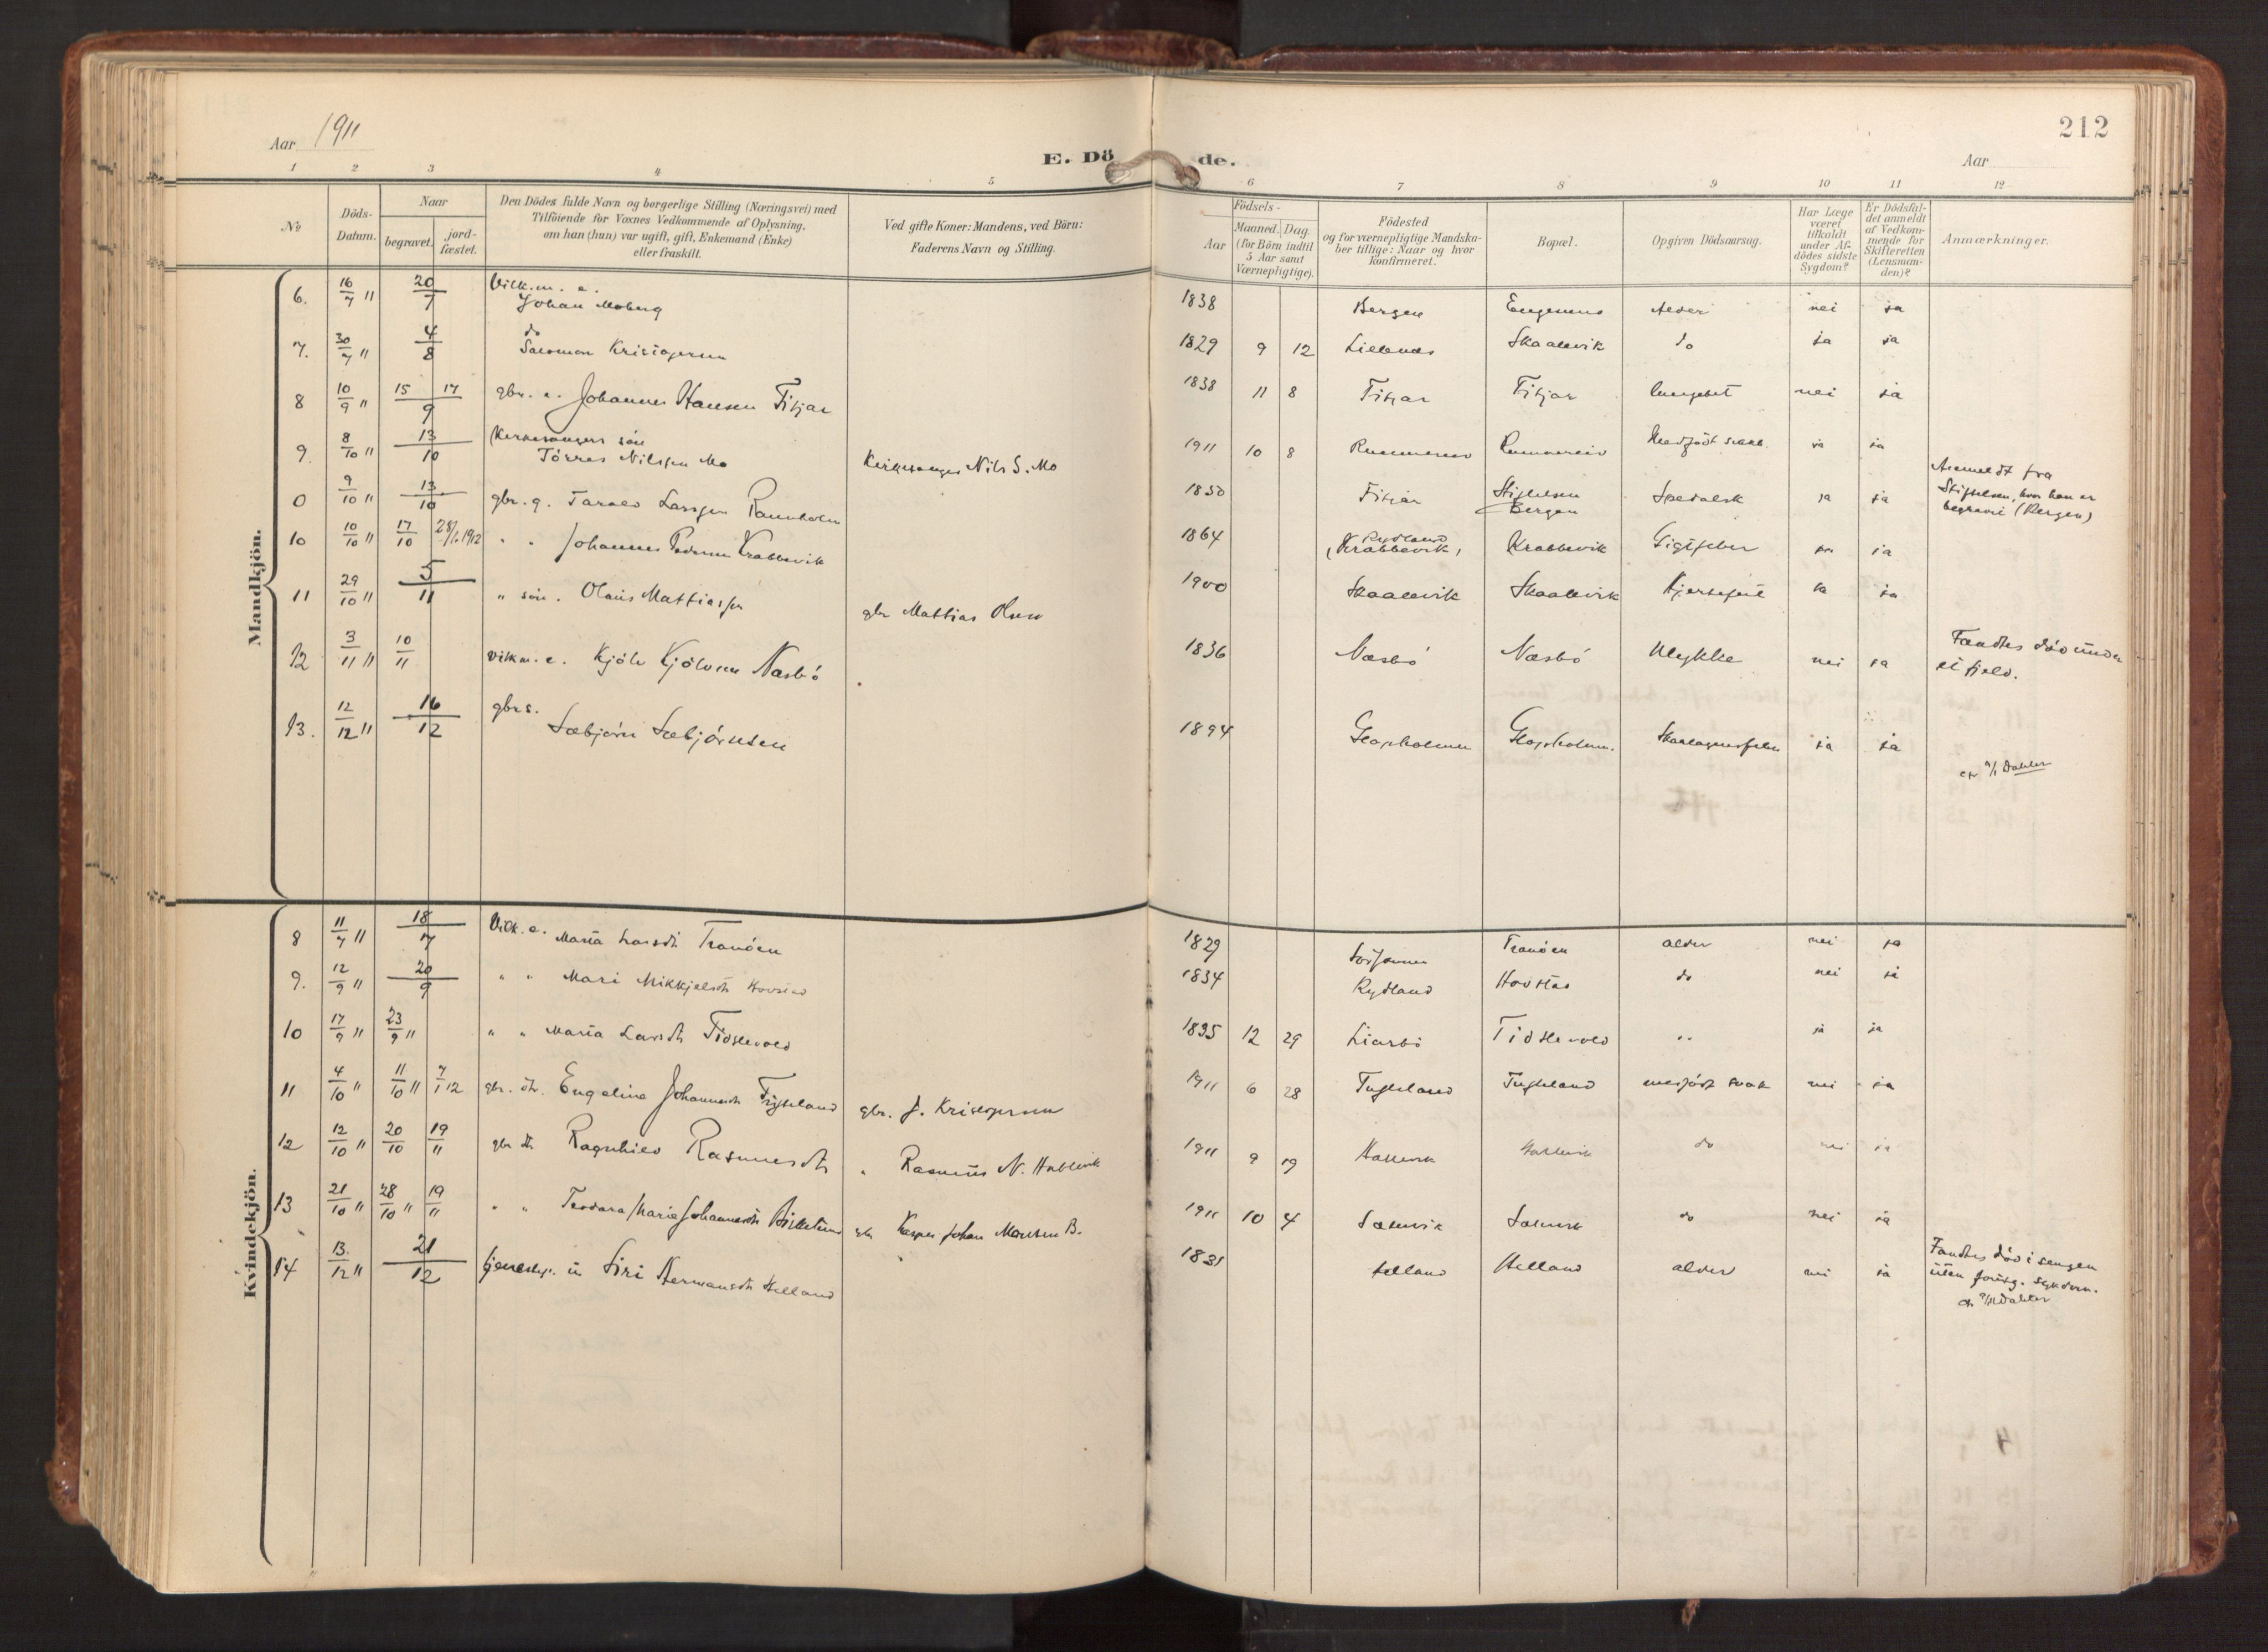 212
Aar 1911
E. Dö de.
Aar
1 2 3 4 5 6 7 8 9 10 11 12
No
Döds-Datum.
Naar
begravet.
jord-fæstet.
Den Dödes fulde Navn og borgerlige Stilling (Næringsvei) med
Tilföiende for Voxnes Vedkommende af Oplysning,
om han (hun) var ugift, gift, Enkemand (Enke)
eller fraskilt.
Ved gifte Koner: Mandens, ved Börn:
Faderens Navn og Stilling.
Födsels-
Aar
Maaned. Dag.
(for Börn indtil
5 Aar samt
Værnepligtige).
Födested
og for værnepligtige Mandska-
ber tillige: Naar og hvor
konfirmeret.
Bopæl.
Opgiven Dödsaarsag.
Har Læge
været
tilkaldt
under Af-
dödes sidste
Sygdom?
Er Dödsfal-
det anmeldt
af Vedkom-
mende for
Skifteretten
(Lensman-
den)?
Anmærkninger.
Mandkjön.
6. 16/7 " 20/7 Vilk.m. e. Johan Moberg 1838 Bergen Engesund Alder nei ja
7. 30/7 " 4/8 do Salomon Kristofersen 1829 9 12 Skaalevik do ja ja
8 10/9 " 15 17/9 gbr. e. Johannes Hansen Fitjar 1838 11 8 Fitjar Fitjar nei ja
9. 8/10 " 13/10 Kirkesangers sön Törres Nilssen Mo Kirkesanger Nils S. Mo 1911 10 8 Rimmereid Rimmereid Medfödt svakh. ja ja
0 9/10 " 13/10 gbr. g. Larssen 1850 Fitjar Stiftelsen Bergen Spedalsk ja ja Anmeldt fra Stiftelsen, hvor han er begravet (Bergen)
10 10/10 " 17/10 28/1 1912 " " Johannes Pedersen Krabbevik 1864 Rydland (Krabbevik) Krabbevik Gigtfeber ja
11 29/10 " 5/11 " sön. Olaus Mattiassen gbr Mattias Olsen 1900 Skaalevik Skaalevik Hjertefeil ja ja
12 3/11 " 10/11 Vilkm. e. Kjölv Kjölvsen Næsbö 1836 Næsbö Næsbö Ulykke nei ja Fandtes död under et fjeld.
13. 12/12 " 16/12 gbrs. Sæbjörn Sæbjörnsen 1894 Gloppholmen Gloppholmen. Skarlagensfeber ja ja
Dahler
Kvindekjön.
8 11/7 " 18/7 Vilk. e. Maria Larsdt Tranöen 1829 Tranöen alder nei ja
9. 12/9 " 20/9 " " Mari Mikkjelsdt Hovstad 1834 Rydland Hovstad do nei ja
10 17/9 " 23/9 " " " Maria Larsdt Tidslevold 1835 12 29 Liarbö Tidslevold " ja ja
11 4/10 " 11/10 " 7/1 12 gbr. dtr. Engeline Johannesdt Tufteland gbr. J. Kristofersen 1911 6 28 Tufteland Tufteland medfödt svak nei ja
12 12/10 " 20/10 19/11 gbr dt Ragnhild Rasmusdt " Rasmus N. 1911 9 19 do nei ja
13 21/10 " 28/10 " 19/11 " " Teodora Maria Johannesdt gbr Kasper Johan Monsen B. 1911 10 4 Sælevik Sælevik do nei ja
14 13/12 " 21/12 u Siri Hermansdt Helland 1835 Helland Helland alder nei ja Fandtes död i sengen uten forutg. sygdom.
Dahler